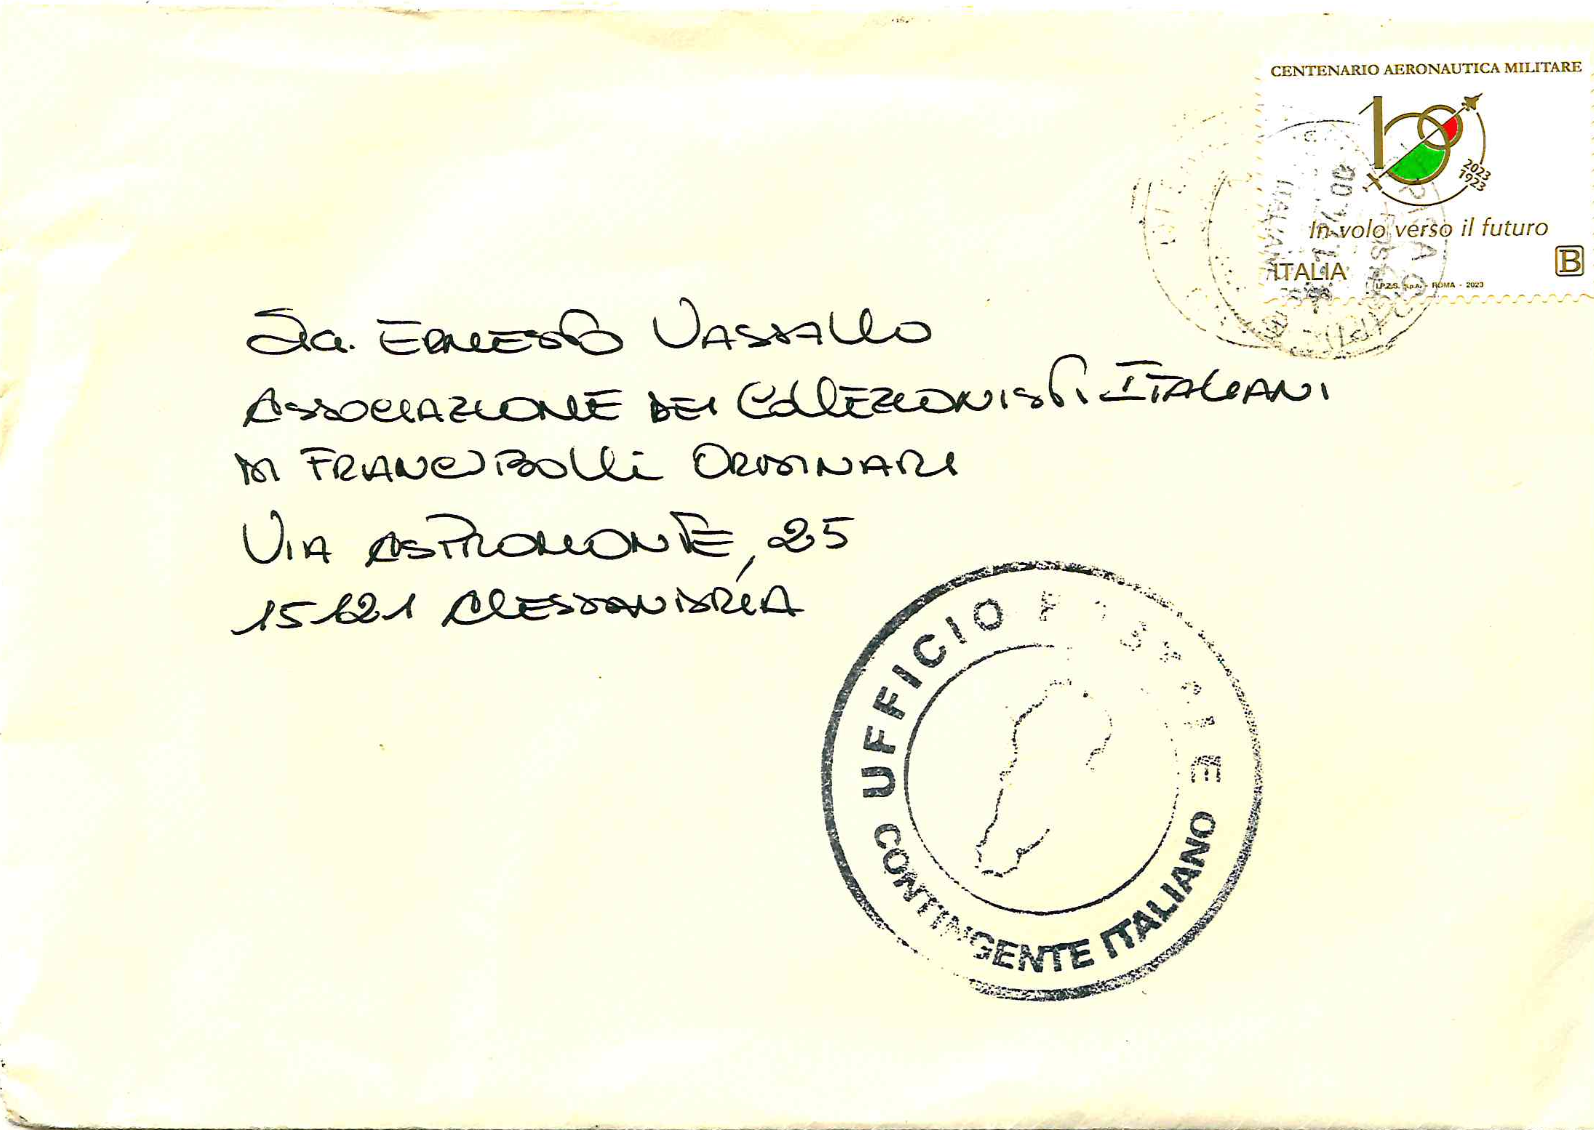 CENTENARIO AERONAUTICA MILITARE
100
2023
1923
In volo verso il futuro
ITALIA
B
I.P.Z.S. S.p.A. - ROMA - 2023
Sig. ERNESTO VASSALLO
ASSOCIAZIONE DEI COLLEZIONISTI ITALIANI
DI FRANCOBOLLI ORDINARI
VIA ASPROMONTE, 25
15121 ALESSANDRIA
UFFICIO POSTALE
CONTINGENTE ITALIANO